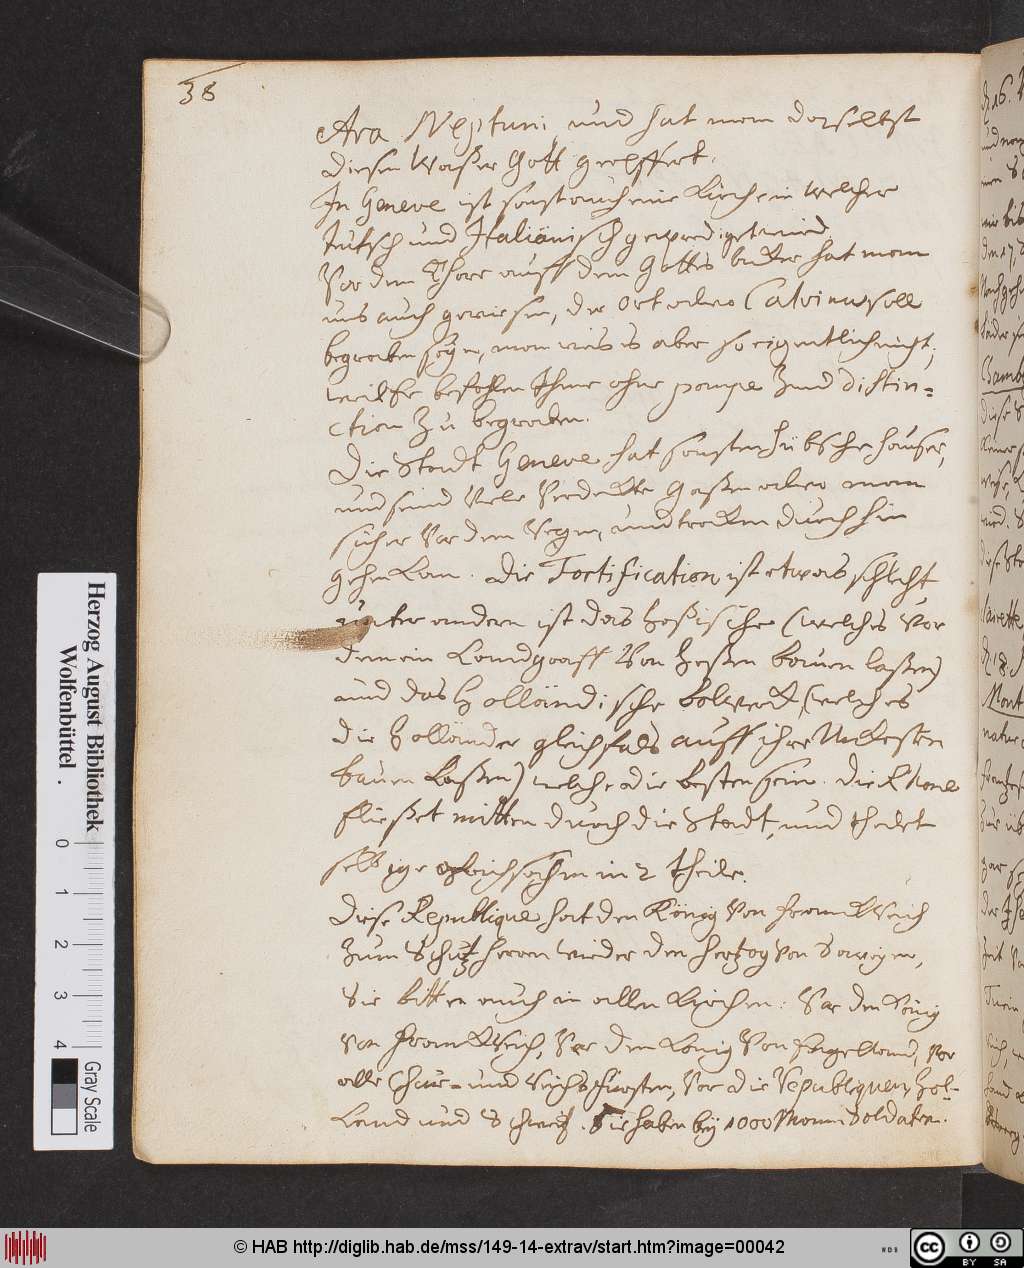 38
Ara Neptuni, und hat man daselbst
diesen Waßer Gott geopffert.
In Geneve ist sonst auch eine Kirche in welcher
teutsch und Italiänisch gepredigt wird
Vor dem Thore auff dem Gottes acker hat man
uns auch gewiesen, der Ort alwo Calvinus soll
begraben seyn, man weis es aber so eigentlich nicht,
weil er befohlen Ihme ohne pompe und distin=
ction zu begraben.
Die Stadt Geneve hat sonsten hübsche häuser,
und seind viele Verdeckte Gaßen alwo man
sicher Vor dem Regen, und trocken durch hin
gehen kan. Die Fortification ist etwas schlecht
unter andern ist das Heßische (welches Vor
dem ein Landgraff Von Heßen bauen laßen)
und das Holländische bolwerck, (welches
die Holländer gleichfals auff ihre Unkosten
bauen Laßen) welche die besten sein. Die Rhone
fließet mitten durch die Stadt, und theilet
selbige gleichsahm in 2 theile.
Diese Republique hat den König Von Franckreich
zum Schutzherrn wieder den Hertzog Von Savoyen,
Sie bitten auch in allen Kirchen: Vor den König
Von Franckreich, Vor den König Von Engelland, Vor
alle Chur= und Reichs Fürsten, Vor die Republiquen Hol=
Land und Schweitz. Sie haben bey 1000 Mann Soldaten.
Herzog August Bibliothek
Wolfenbüttel .
0 1 2 3 4
Gray Scale
© HAB http://diglib.hab.de/mss/149-14-extrav/start.htm?image=00042
cc BY SA